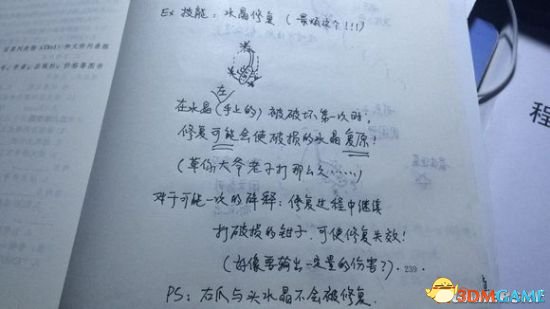 Ex 技能：水晶修复（最烦这个!!!）
左
在水晶（手上的）被破坏第一次时，
修复可能会使破损的水晶复原！
（草你大爷老子打那么久……）
对于可能一次的解释：修复过程中继续
打破损的钳子，可使修复失效！
（好像要输出一定量的伤害？）.
239
PS：右爪与头水晶不会被修复.
程
3DMGAME